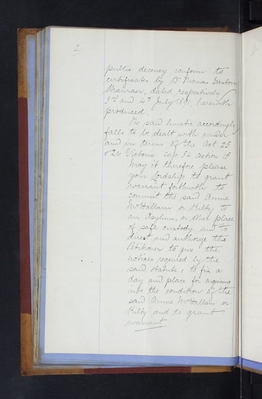 2
public decency conform to
certificates by Dr Thomas Graham
dated respectively
3rd and 4th July 1891, herewith
produced.
The said lunatic accordingly
falls to be dealt with under
and in terms of the Act 25
& 26 Victoria cap 54 section 15
May it therefore please
your Lordship to grant
warrant forthwith to
commit the said Annie
McCallum or Kelly to
an Asylum, or other place
of safe custody and to
direct and authorize the
Petitioner to give the
notices required by the
said Statute; to fix a
day and place for inquiring
into the condition of the
said Annie McCallum or
Kelly and to grant
warrant